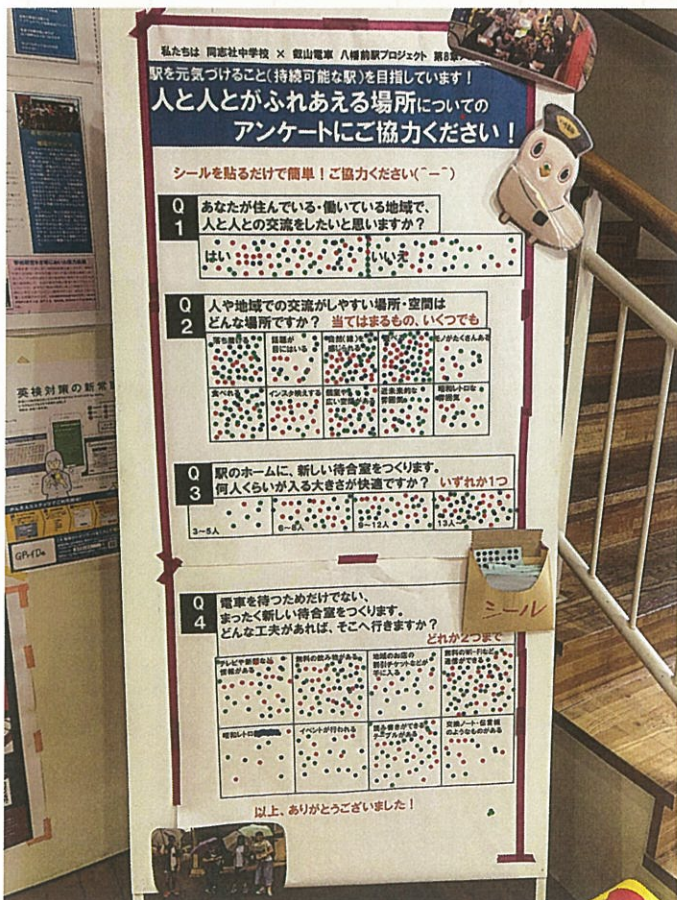 私たちは 同志社中学校 × 叡山電車 八幡前駅プロジェクト
駅を元気づけること(持続可能な駅)を目指しています！
人と人とがふれあえる場所についての
アンケートにご協力ください！
シールを貼るだけで簡単！ご協力ください(￣ー￣)
Q1
あなたが住んでいる・働いている地域で、
人と人との交流をしたいと思いますか？
はい
いいえ
Q2
人や地域での交流がしやすい場所・空間は
どんな場所ですか？ 当てはまるもの、いくつでも
落ち着ける
話題が
目にはいる
自然(緑)を
感じられる
モノがたくさんある
食べれる
インスタ映えする
広い空間がある
近未来的な
雰囲気
昭和レトロな
雰囲気
Q3
駅のホームに、新しい待合室をつくります。
何人くらいが入る大きさが快適ですか？ いずれか1つ
3~5人
6~8人
9~12人
13人~
シール
Q4
電車を待つためだけでない、
まったく新しい待合室をつくります。
どんな工夫があれば、そこへ行きますか？
どれか2つまで
テレビや新聞など
情報がある
無料の飲み物がある
地域のお店の
割引チケットなどが
手に入る
無料のWi-Fiなど
通信ができる
昭和レトロ
イベントが行われる
読み書きができる
テーブルがある
交換ノート・伝言板
のようなものがある
以上、ありがとうございました！
英検対策の新常